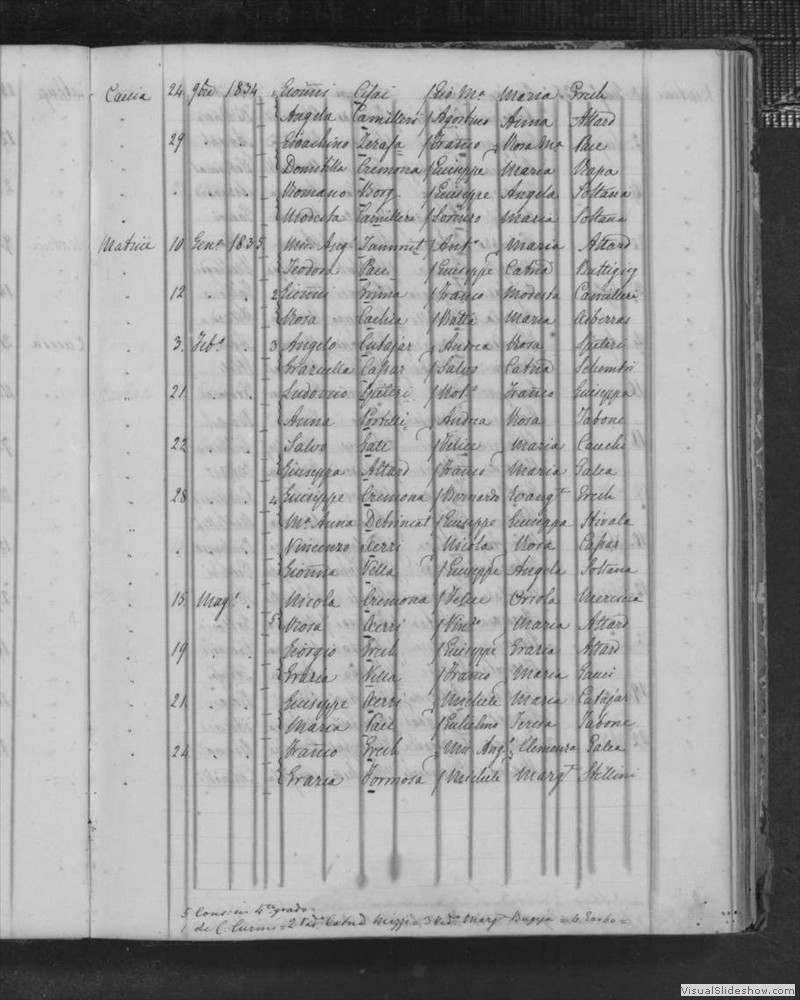 Caccia 24 9bre 1834 1 Gionni Cifai Gio Ma Maria Grech
" Angela Camilleri Agostino Anna Attard
" 29 " " Gioachino Zerafa Franco Rosa Ma Pace
" Domitilla Cremona Giuseppe Maria Xapa
" " " " Romano Borg Giuseppe Angela Soltana
" Modesta Camilleri Lorenzo Maria Soltana
Matrice 10 Geno 1835 Mic: Ang Anto Maria Attard
" Teodora Pace Giuseppe Catna Buttigieg
" 12 " " 2 Gionni Grima Franco Modesta Camilleri
" Rosa Cachia Batta Maria Asberras
" 3 Febo " 3 Angelo Cutajar Andrea Rosa Spiteri
" Grazulla Capar Salvo Catna Schembri
" 21 " " Ludovico Spiteri Not: Franco Giuseppa
" Anna Portelli Andrea Rosa Tabone
" 22 " " Salvo Gatt Felice Maria Cauchi
" Giuseppa Attard Franco Maria Galea
" 28 " " 4 Giuseppe Cremona Bernardo Evangta Grech
" Ma Anna Debrincat Giuseppe Giuseppa Stivala
" " " " Vincenzo Axerri Nicola Rosa Capar
" Gionna Vella Giuseppe Angela Soltana
" 15 Mago " Nicola Cremona Felice Oriola Mercieca
" 5 Rosa Axerri Vinzo Maria Attard
" 19 " " Giorgio Grech Giuseppe Grazia Attard
" Grazia Vella Franco Maria Gauci
" 21 " " Giuseppe Axerri Michele Maria Cutajar
" Maria Pace Gulielmo Teresa Tabone
" 24 " " Franco Grech Mic: Ango Clemenza Galea
" Grazia Formosa Michele Margta Stellini
5 Consan: 4to grado
1 de C. Curmi = 2 Vedo Catna Mizzi = 3 Vedo Margta = 4
VisualSlideshow.com